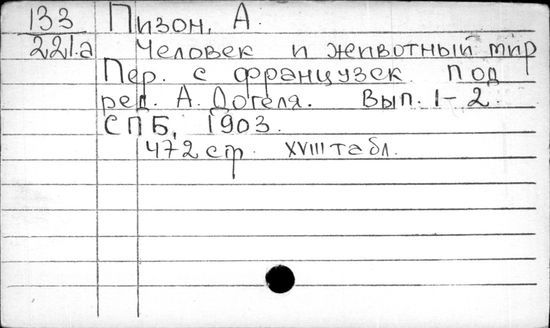 133 Пизон, А.
221.а Человек и животный мир
Пер. с французск. под
ред. А. Догеля. Вып. 1-2.
СПБ, 1903.
472 стр. XVIII табл.